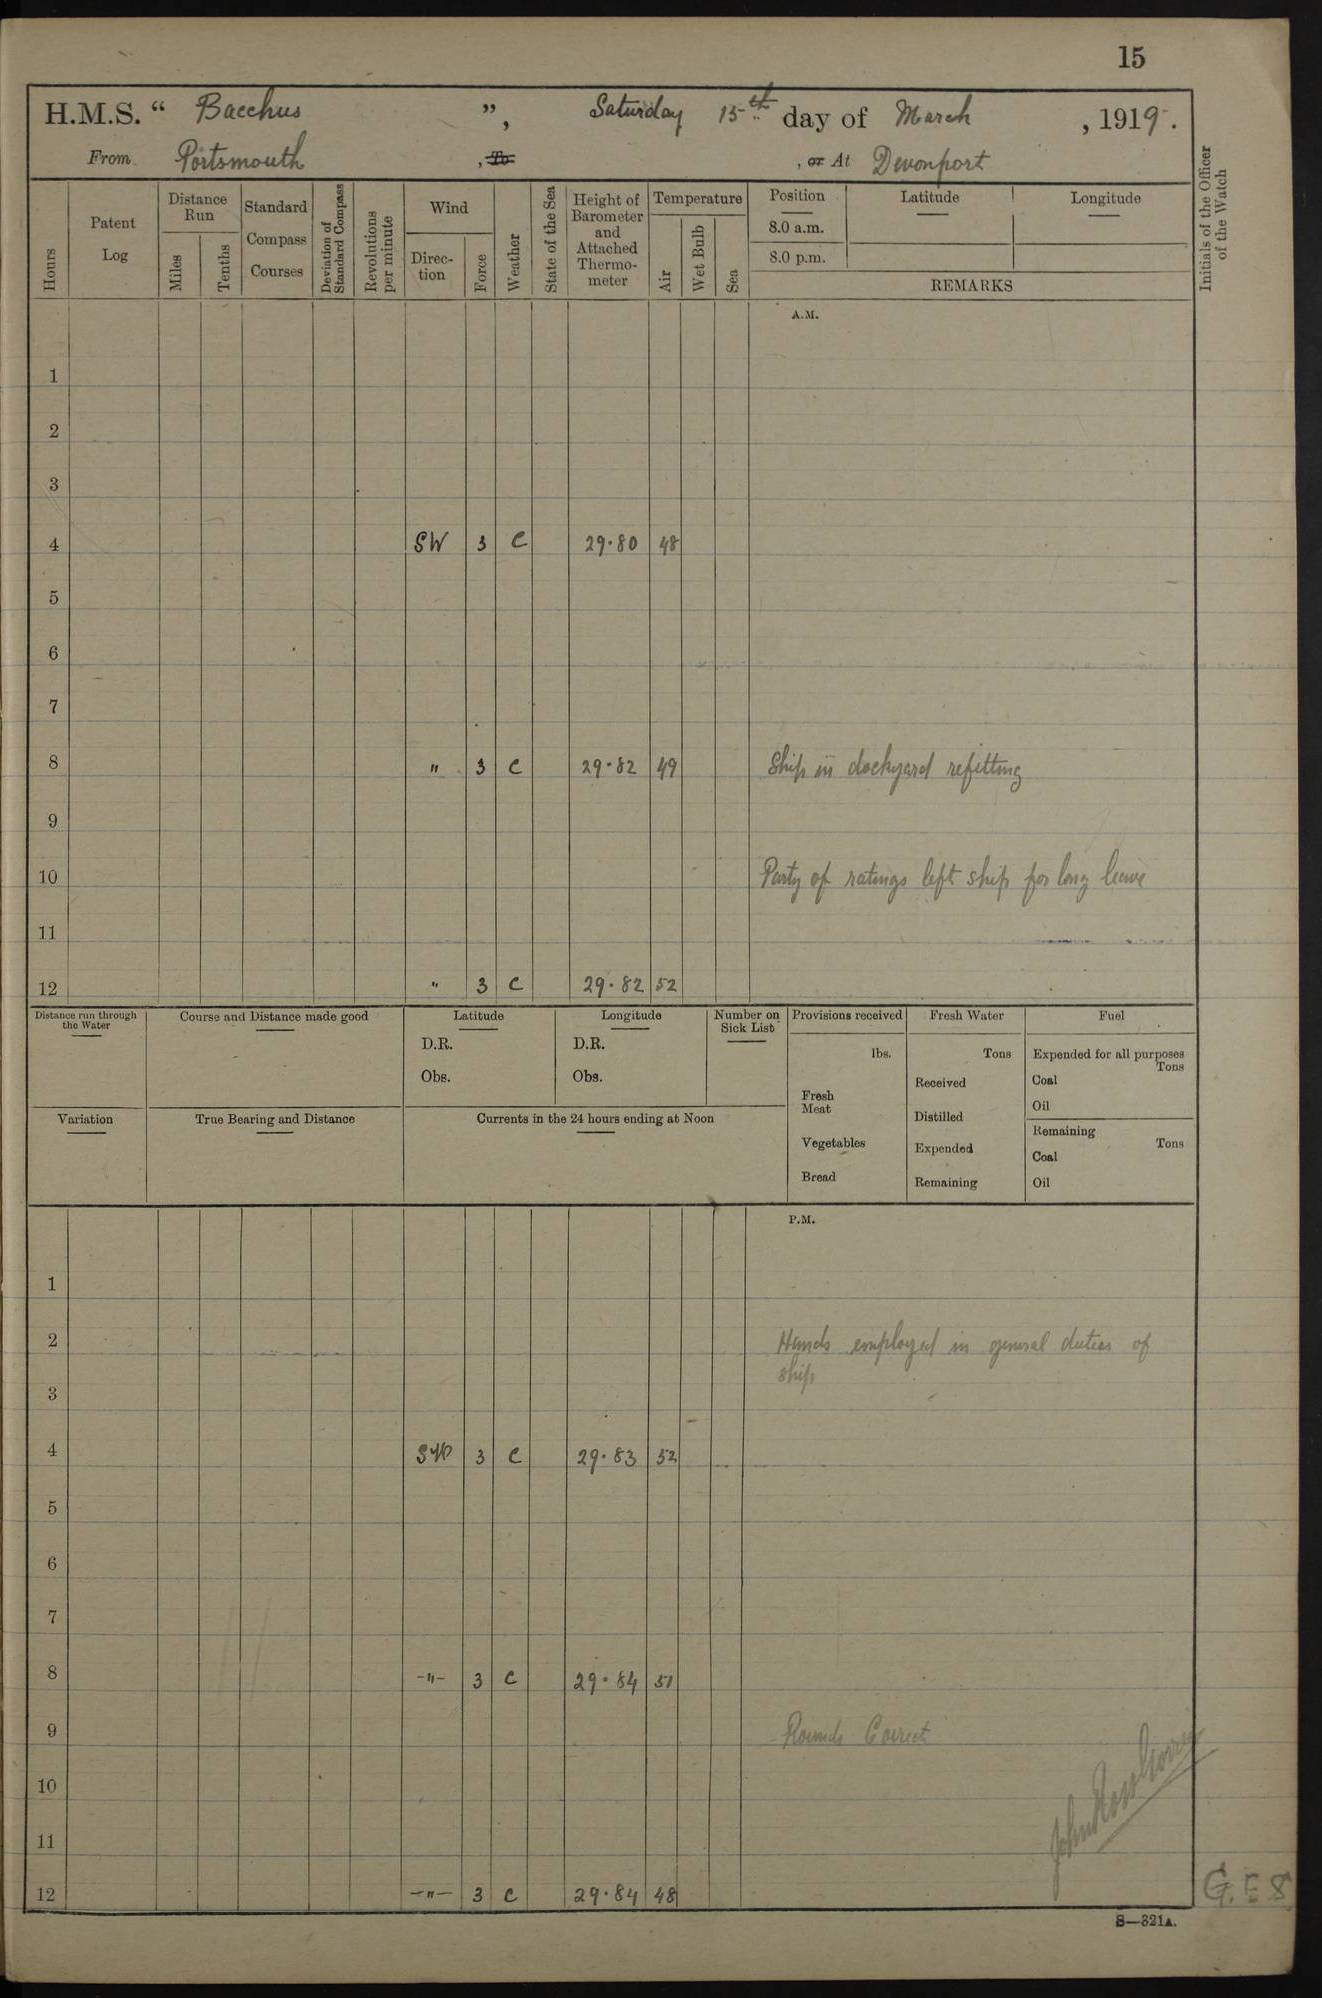 15
H.M.S. “ Bacchus ”, Saturday 15th day of March , 1919.
From Portsmouth , To , or At Devonport
Hours
Patent Log
Distance Run
Miles
Tenths
Standard Compass Courses
Deviation of Standard Compass
Revolutions per minute
Wind
Direction
Force
Weather
State of the Sea
Height of Barometer and Attached Thermometer
Temperature
Air
Wet Bulb
Sea
Position
8.0 a.m.
8.0 p.m.
Latitude
Longitude
REMARKS
Initials of the Officer of the Watch
A.M.
1
2
3
4 SW 3 C 29·80 48
5
6
7
8 " 3 C 29·82 49 Ship in dockyard refitting
9
10 Party of ratings left ship for long leave
11
12 " 3 C 29·82 52
Distance run through the Water
Course and Distance made good
Latitude
D.R.
Obs.
Longitude
D.R.
Obs.
Number on Sick List
Provisions received
lbs.
Fresh Meat
Vegetables
Bread
Fresh Water
Tons
Received
Distilled
Expended
Remaining
Fuel
Expended for all purposes
Tons
Coal
Oil
Remaining
Tons
Coal
Oil
Variation
True Bearing and Distance
Currents in the 24 hours ending at Noon
P.M.
1
2 Hands employed in general duties of
ship
3
4 SW 3 C 29·83 52
5
6
7
8 -"- 3 C 29·84 51
9 Rounds Correct
10
11
12 -"- 3 C 29·84 48
G.E.S
S—321A.